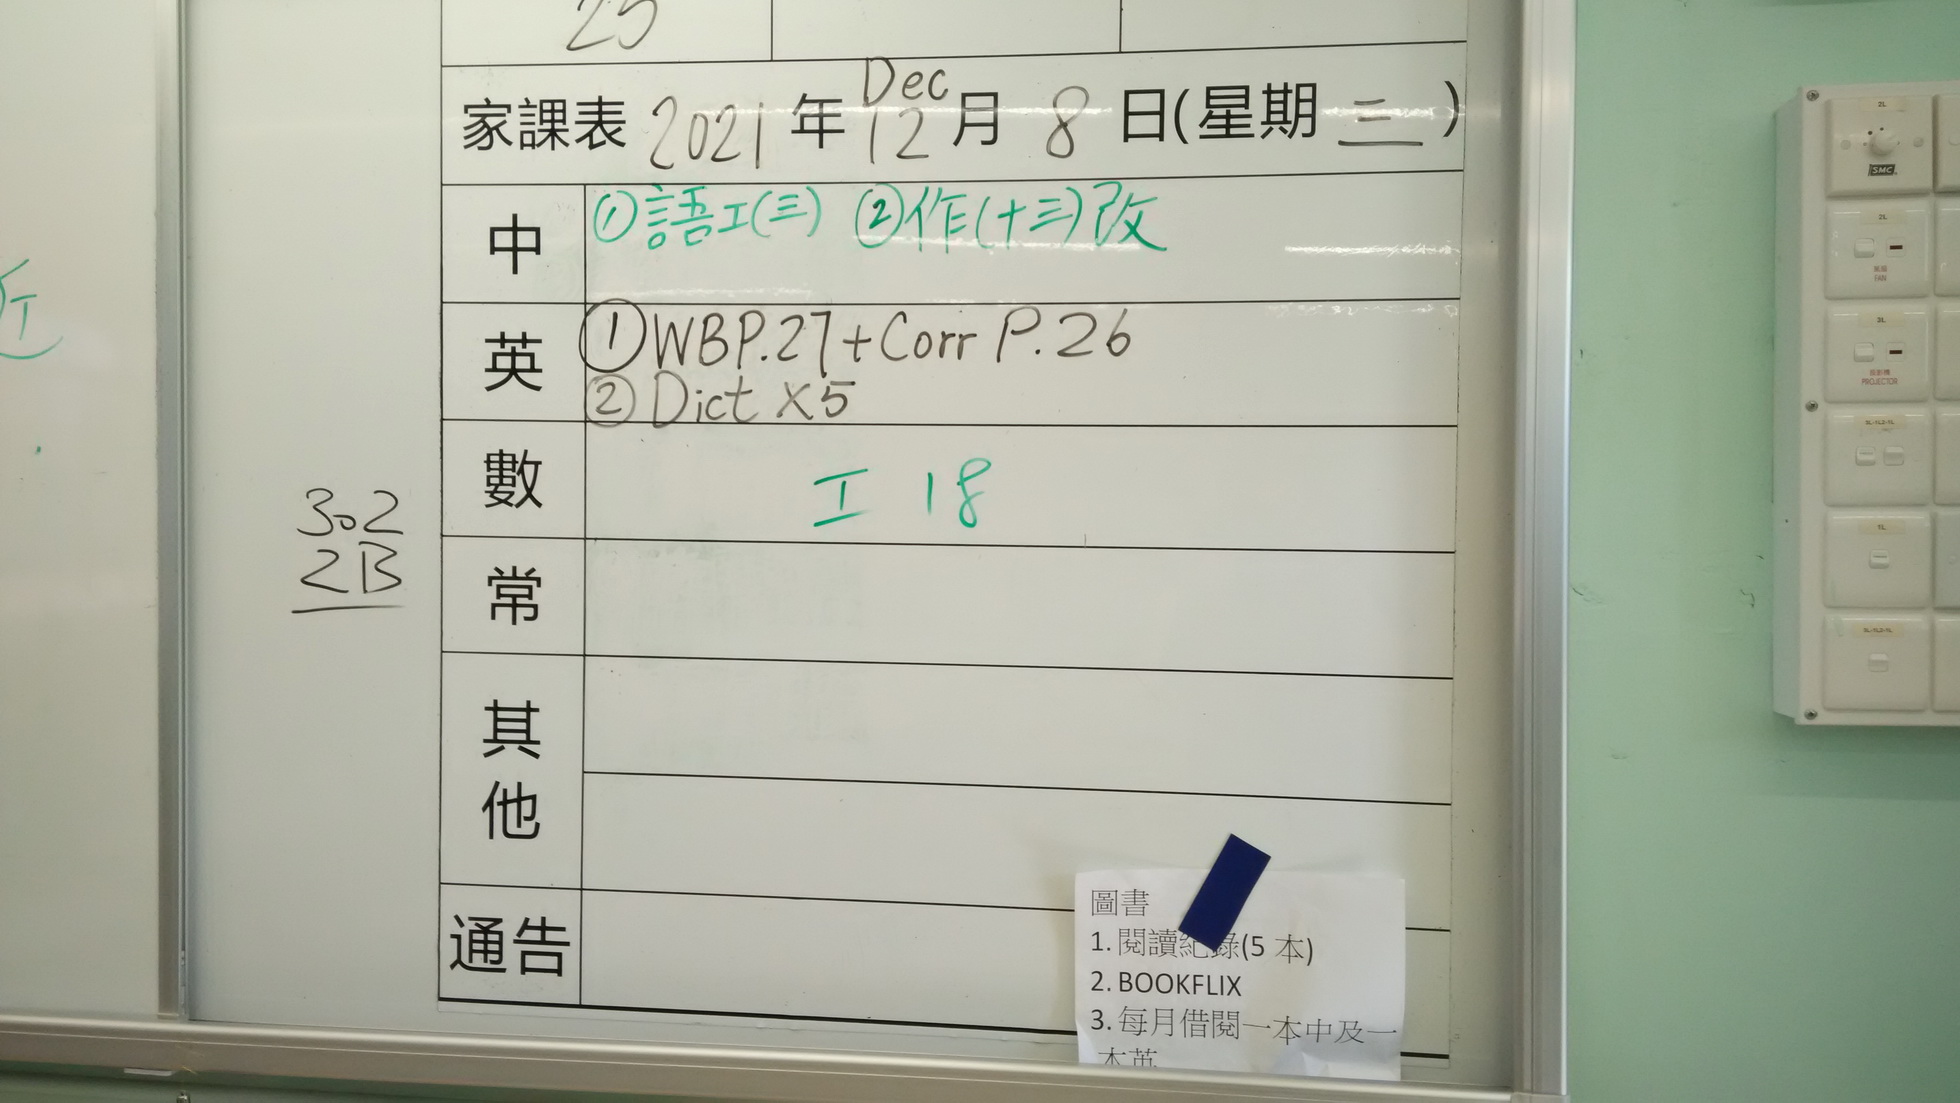 25
Dec
家課表 2021 年 12 月 8 日(星期 三 )
中 ①語工(三) ②作(十三)改
英 ①WBP.27+Corr P.26
②Dict X5
數 工 18
3.2
2B
常
其他
通告
圖書
1. 閱讀紀錄(5 本)
2. BOOKFLIX
3. 每月借閱一本中及一
本英
近
2L
SMC
2L
風扇
FAN
3L
投影機
PROJECTOR
1L